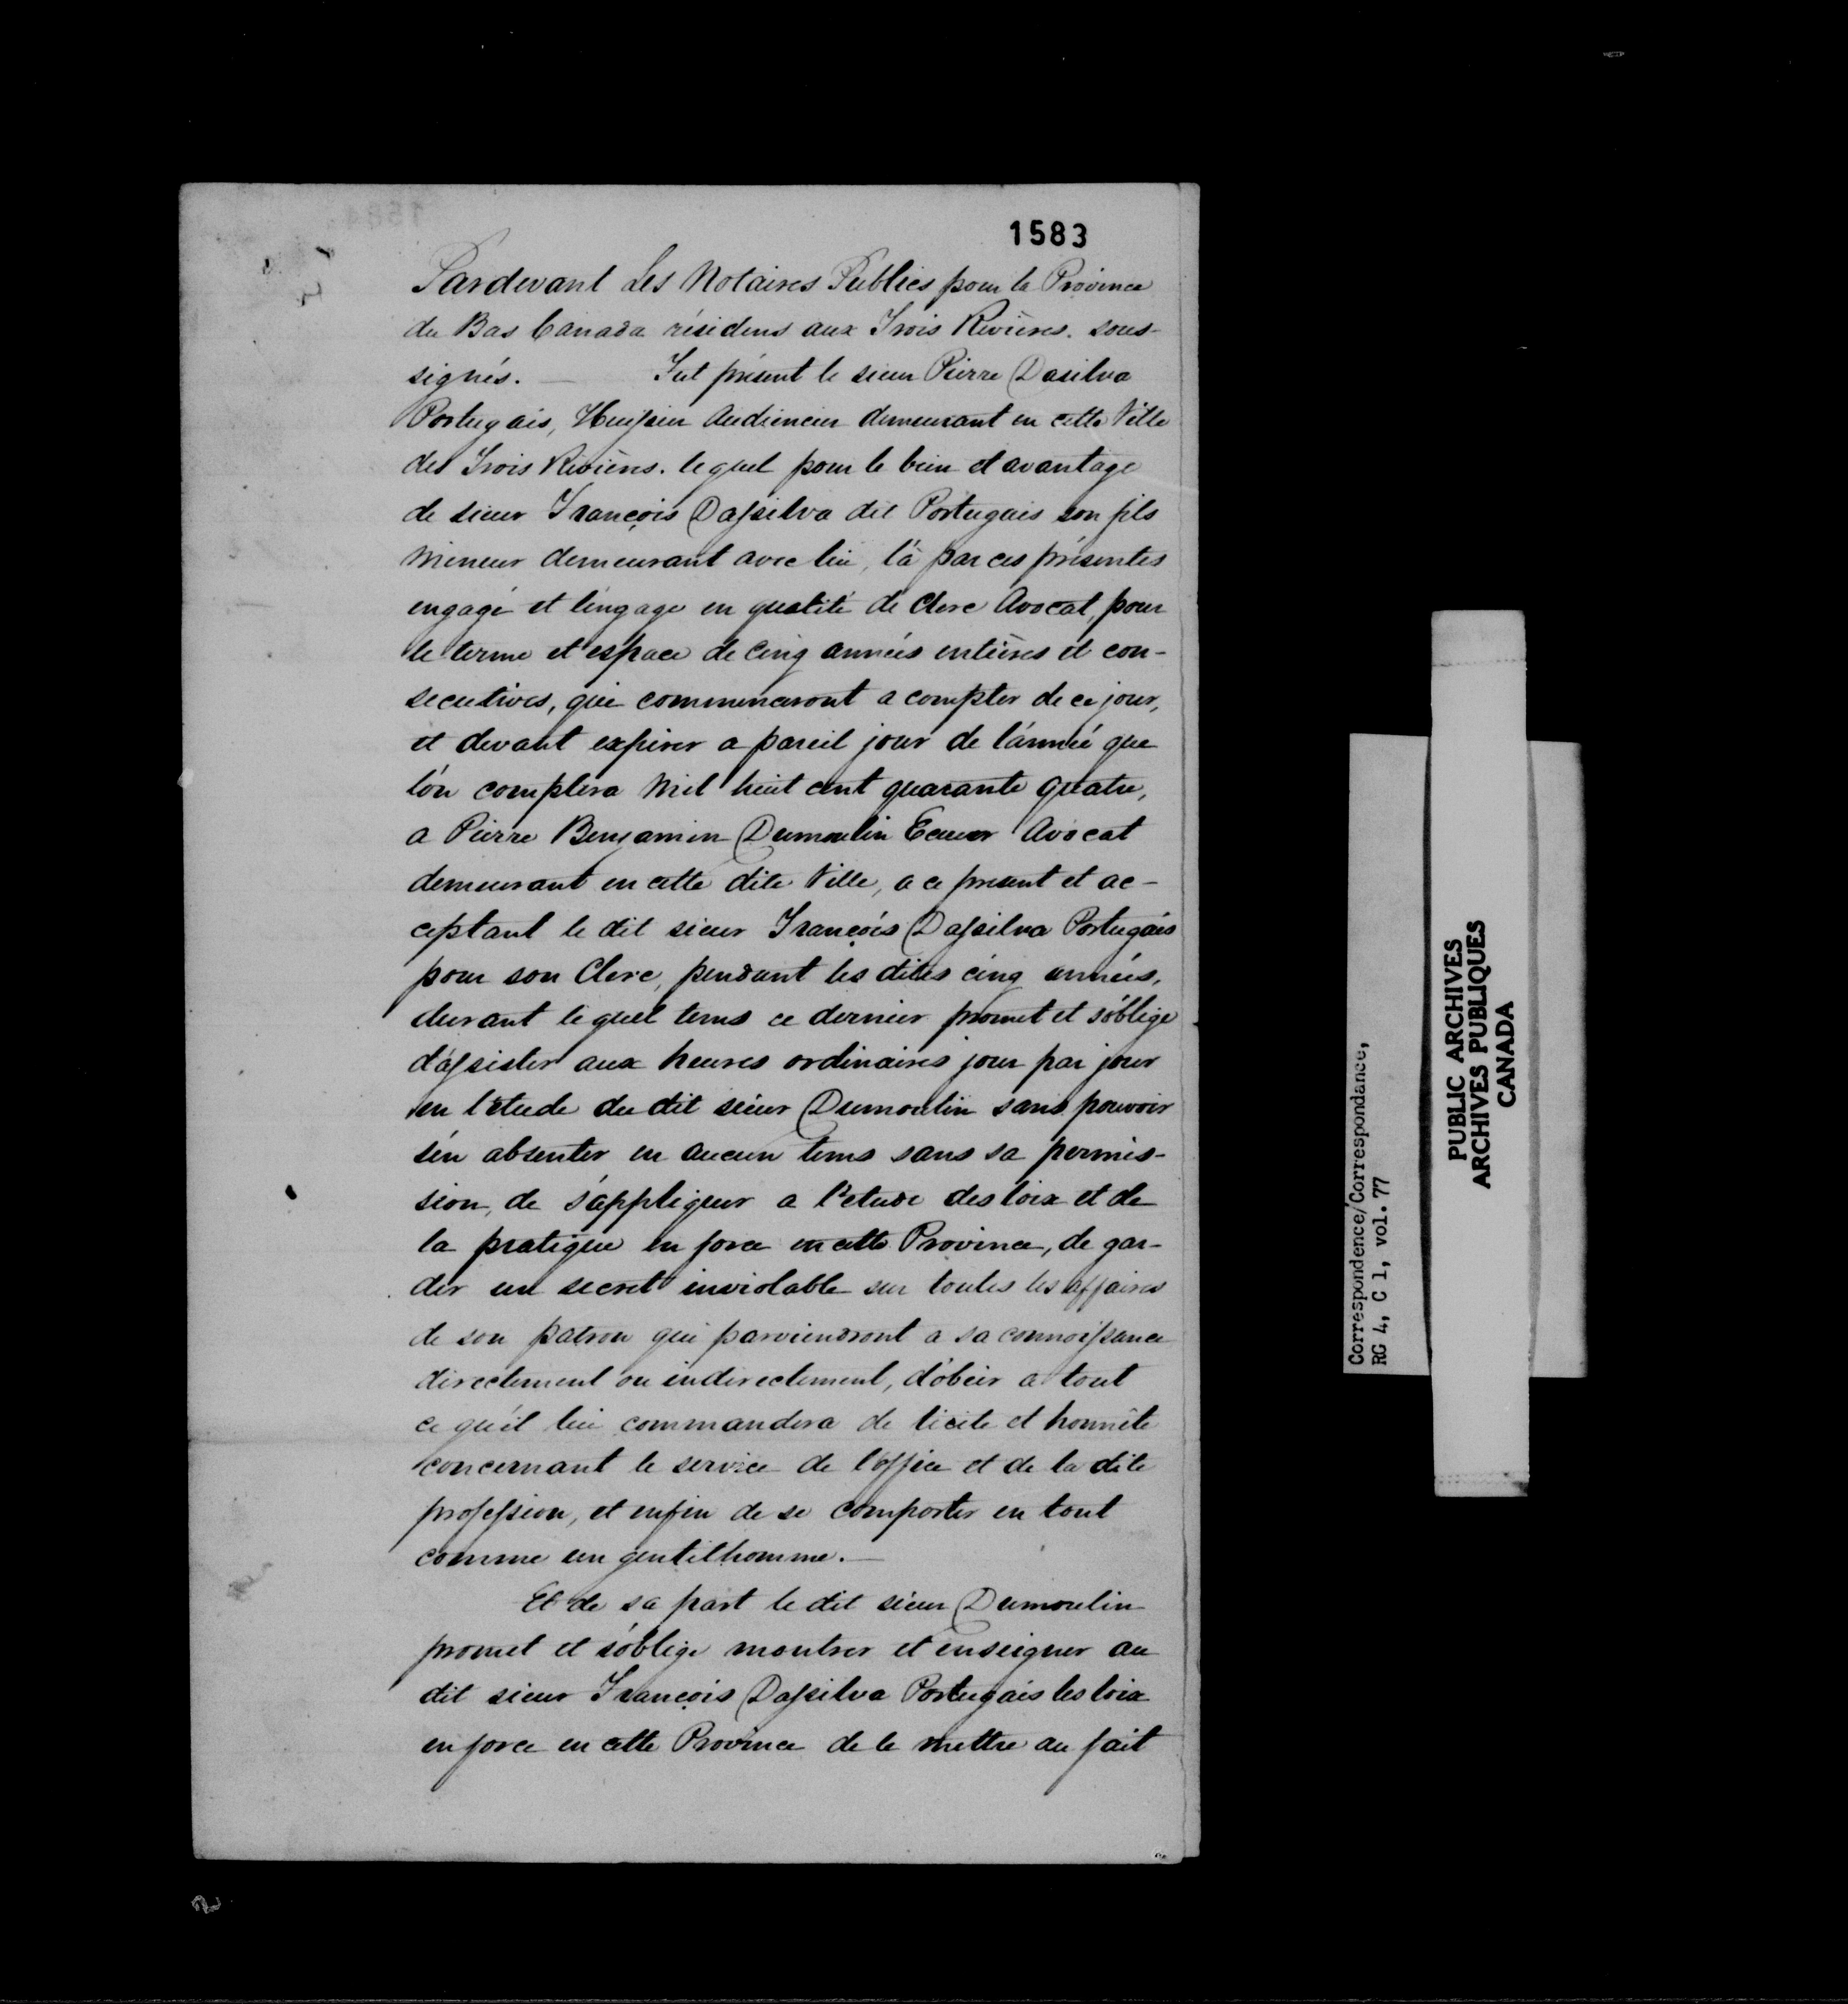 1583
Pardevant Les Notaires Publics pour la Province
du Bas Canada résidens aux Trois Rivières. sous-
signés. — Fut présent le sieur Pierre Dasilva
Portugais, Huissier Audiencier demeurant en cette Ville
des Trois Rivières. lequel pour le bien et avantage
de sieur François Dassilva dit Portugais son fils
mineur demeurant avec lui, l'à par ces présentes
engagé et l'engage en qualité de Clerc Avocat, pour
le terme et espace de cinq années entières et con-
secutives, qui commenceront a compter de ce jour,
et devant expirer a pareil jour de l'année que
l'on comptera Mil huit cent quarante quatre,
a Pierre Benjamin Dumoulin Ecuier Avocat
demeurant en cette dite Ville, a ce present et ac-
ceptant le dit sieur François Dassilva Portugais
pour son Clerc, pendant les dites cinq années,
durant le quel tems ce dernier promet et s'oblige
d'assister aux heures ordinaires jour par jour
en l'étude du dit sieur Dumoulin sans pouvoir
s'en absenter en aucun tems sans sa permis-
sion, de s'appliquer a l'etude des loix et de
la pratique en force en cette Province, de gar-
der un secret inviolable sur toutes les affaires
de son patron qui parviendront a sa connoissance
directement ou indirectement, d'obeir a tout
ce qu'il lui commandera de licite et honnête
concernant le service de l'office et de la dite
profession, et enfin de se comporter en tout
comme un gentilhomme. —
Et de sa part le dit sieur Dumoulin
promet et s'oblige montrer et enseigner au
dit sieur François Dassilva Portugais les loix
en force en cette Province de le mettre au fait
Correspondence/Correspondance,
RG 4, C 1, vol. 77
PUBLIC ARCHIVES
ARCHIVES PUBLIQUES
CANADA